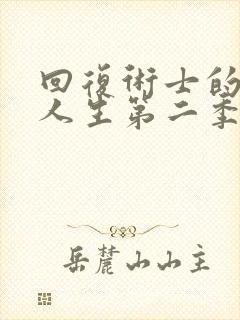 回復術士的
人生第二季
岳麓山山主